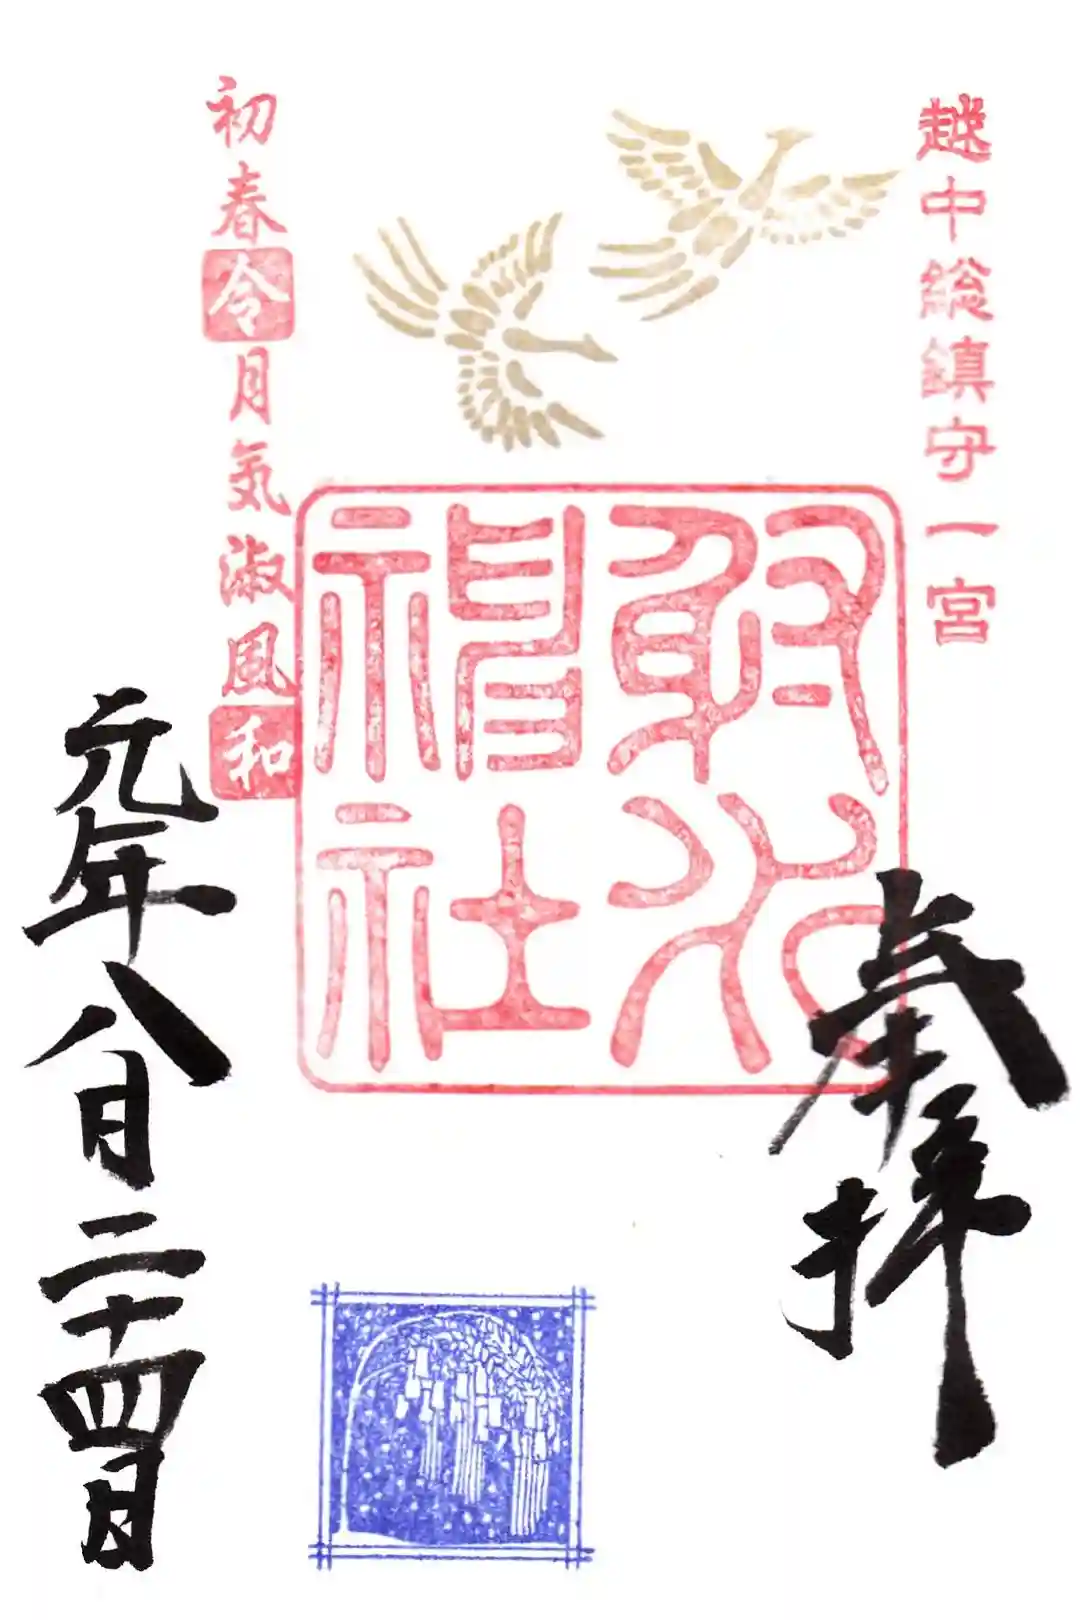 越中総鎮守一宮
奉拝
射水
神社
初春令月気淑風和
元年八月二十四日